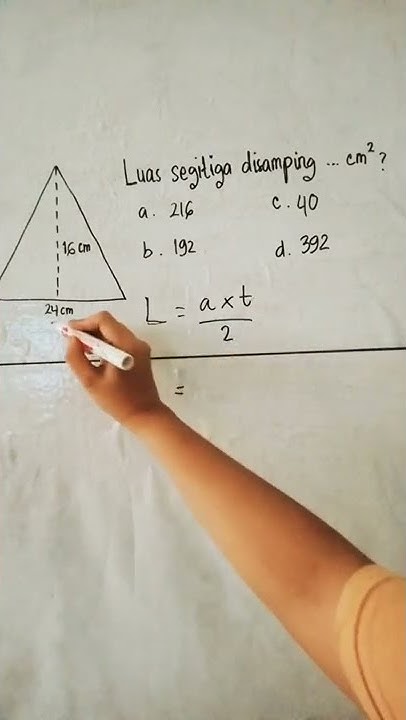 Luas segitiga disamping ... cm²?
a. 216
c. 40
b. 192
d. 392
16 cm
24 cm
L = a x t
2
=